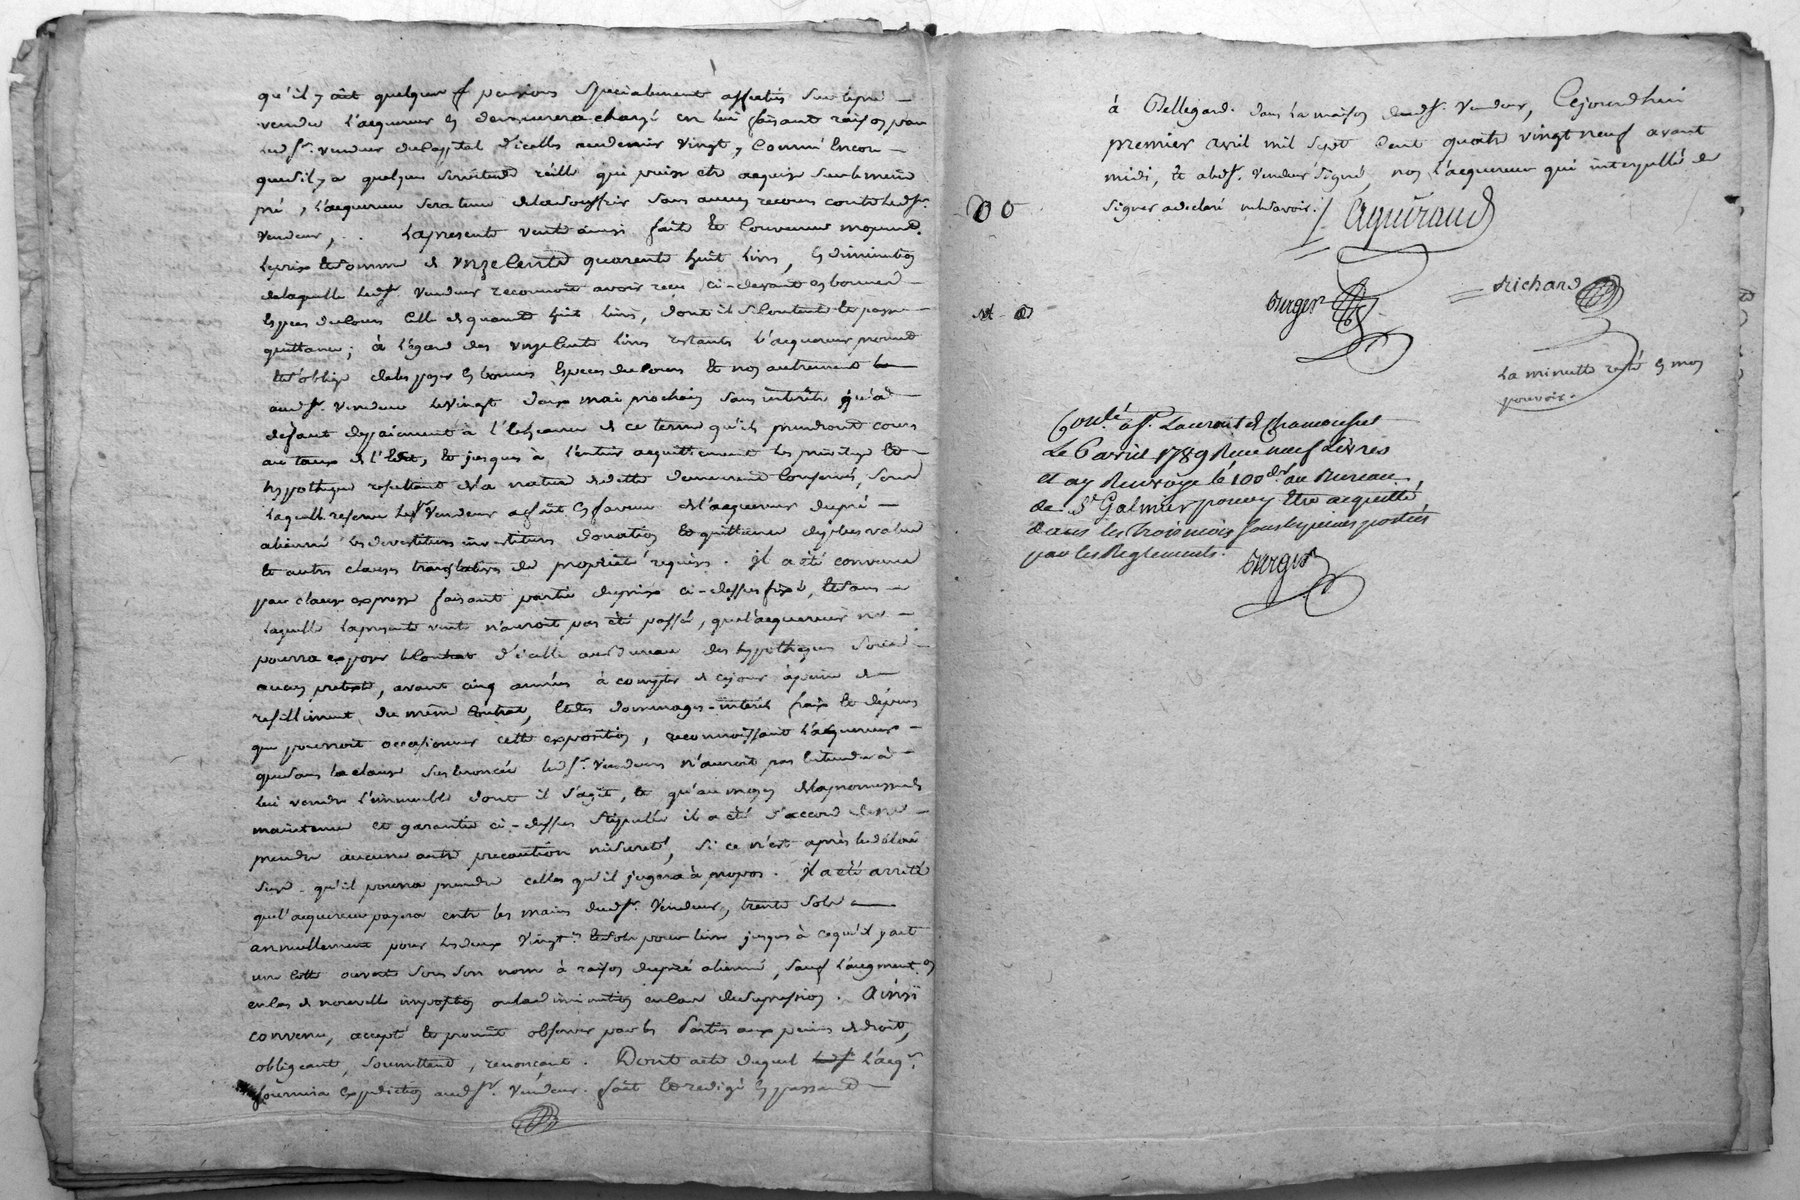 qu'il y ait quelques pensions specialement affectés sur le pré
vendu l'acquereur en demeurera chargé en lui faisant raison par
led sr. vendeur du Capital d'icelles au denier vingt, Comme Encore
que s'il y a quelque servitude réelle qui puisse etre acquise sur le meme
pré, l'acquereur sera tenu de la souffrir sans aucun recours contre led sr.
vendeur, . La presente vente ainsi faite et Convenue moyennt.
le prix et somme de onze Cents quarente huit livres, en diminution
de laquelle led sr. vendeur reconnoit avoir reçu ci-devant en bonnes
Especes du Cours Celle de quarente huit livres, dont il se Contente et passe
quittance; à l'égard des onze Cents livres restants l'acquereur promet
et s'oblige de les payer en bonnes Especes du Cours et non autrement
aud sr. vendeur le vingt deux mai prochain sans interêts qu'à
defaut de payement à l'echeance de ce terme qu'ils prendront cours
au taux de l'Edit, et jusques à l'entier acquittement les privilege et
hypotheque resultant de la nature de dette demeurent Conservés, sous
laquelle reserve led sr vendeur a fait en faveur de l'acquereur du pré
alienné les devestitures investitures donation et quittance de plus value
et autres clauses translatives de propriété requises. Il a été convenu
par clause expresse faisant partie du prix ci-dessus fixé, et sans
laquelle la presente vente n'auroit pas été passée, que l'acquereur ne
pourra exposer le Contrat d'icelle au Bureau des hypotheques sous
aucun pretexte, avant cinq années à compter de ce jour à peine de
resiliment du même Contrat, et des dommages-interets frais et dépens
que pourroit occasionner cette exposition, reconnoissant l'acquereur
que sans la clause sus enoncée led sr. vendeur n'auroit pas entendu à
lui vendre l'immeuble dont il s'agit, et qu'au moyen de la promesse de
maintenue et garantie ci-dessus stipulée il a été d'accord de ne
prendre aucune autre precaution ni sureté, si ce n'est après led délai
sus qu'il pourra prendre celles qu'il jugera à propos. Il a été arreté
que l'acquereur payera entre les mains dud sr. vendeur, trente sols
annuellement pour les deux vingt. et sols pour livre jusques à ce qu'il y ait
une Cotte ouverte sous son nom à raison du pré alienné, sauf l'augment.on
en cas de nouvelle imposition ou la diminution en cas de supression. Ainsi
convenu, accepté et promit observer par les Parties aux peines de droit,
obligeant, soumettant, renonçant. Dont acte duquel l'acqr.
fournira expedition aud sr. vendeur. fait et redigé en passant
à Bellegarde dans la maison dud sr. vendeur, Cejourdhui
premier avril mil sept Cent quatre vingt neuf avant
midi, et a led sr. vendeur signé, non l'acquereur qui interpellé de
signer a declaré ne le savoir.
Aguiraud
Berger
Richard
La minutte resté en mon
pouvoir.
Conlé à St. Laurent de Chamousset
Le 6 avril 1789 Reçu neuf Livres
et ay Renvoyé le 100der au Bureau
de St Galmier pour y Etre acquitté
dans les trois mois sous les peines portées
par les Reglements.
Berger